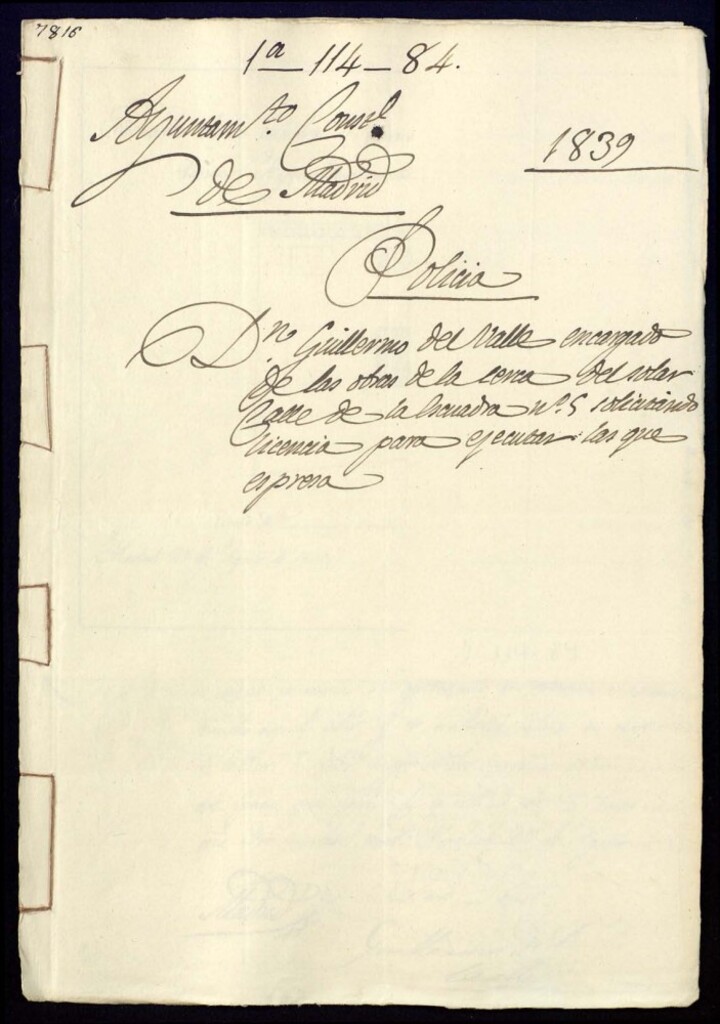 7816
1ª—114—84.
Ayuntam.to Consl
de Madrid
1839
Policia
D.n Guillermo del Valle encargado
de las obras de la cerca del solar
Calle de la Escuadra nº. 5 solicitando
licencia para ejecutar las que
espresa